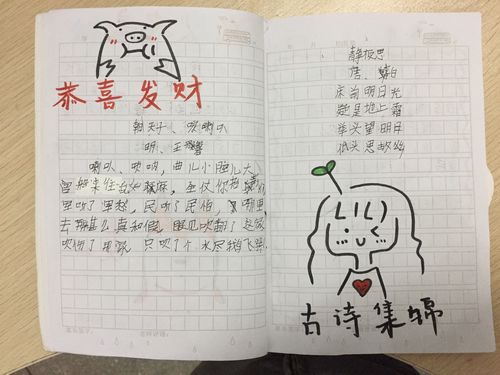 恭喜发财
朝天子、咏喇叭
明、王磐
喇叭、唢呐,曲儿小腔儿大
官船来往乱如麻,全仗你抬
军听了军愁,民听了民怕,哪里
去辨甚么真和假,眼见吹翻了这家
吹伤了那家,只吹了个水尽鹅飞
静夜思
唐、李白
床前明月光
疑是地上霜
举头望明月
低头思故乡
古诗集锦